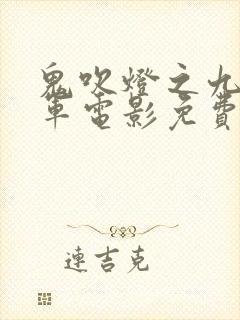 鬼吹燈之九
軍電影免費
連吉克